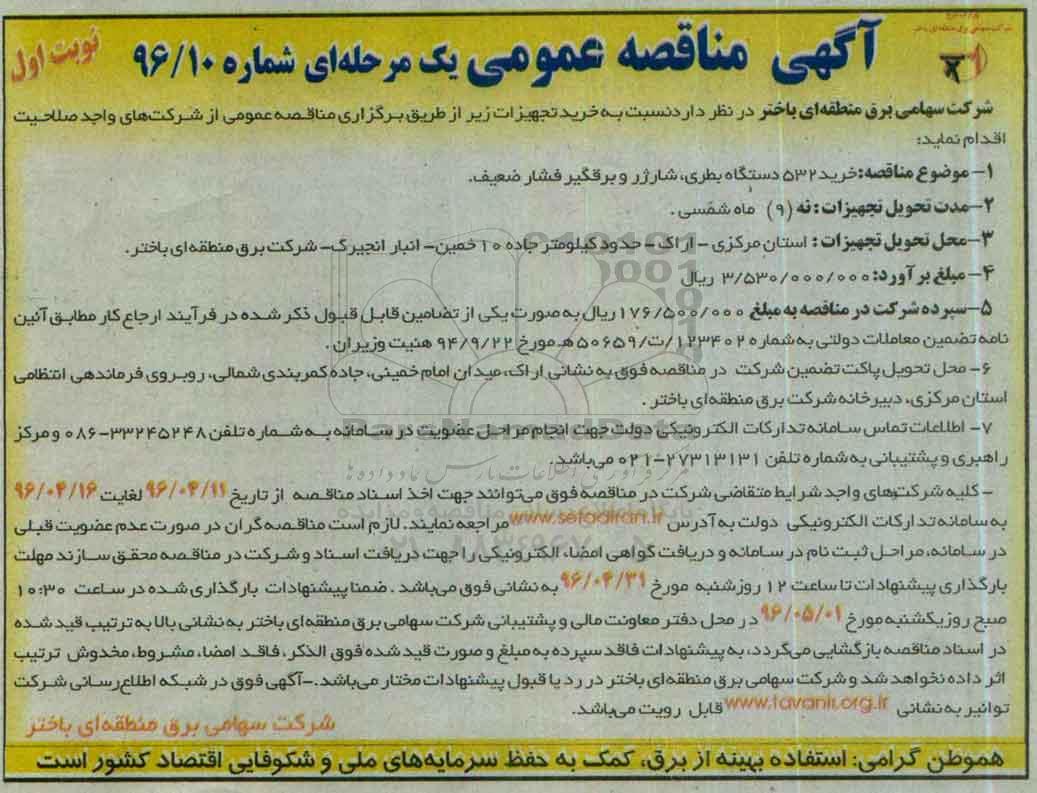 آگهی مناقصه عمومی یک مرحله‌ای شماره ۹۶/۱۰
نوبت اول
شرکت سهامی برق منطقه‌ای باختر در نظر دارد نسبت به خرید تجهیزات زیر از طریق برگزاری مناقصه عمومی از شرکت‌های واجد صلاحیت
اقدام نماید:
۱- موضوع مناقصه: خرید ۵۳۲ دستگاه بطری، شارژر و برقگیر فشار ضعیف.
۲- مدت تحویل تجهیزات: نه (۹) ماه شمسی.
۳- محل تحویل تجهیزات: استان مرکزی - اراک - حدود کیلومتر جاده ۱۰ خمین - انبار انجیرک - شرکت برق منطقه‌ای باختر.
۴- مبلغ برآورد: ۳/۵۳۰/۰۰۰/۰۰۰ ریال
۵- سپرده شرکت در مناقصه به مبلغ ۱۷۶/۵۰۰/۰۰۰ ریال به صورت یکی از تضامین قابل قبول ذکر شده در فرآیند ارجاع کار مطابق آئین
نامه تضمین معاملات دولتی به شماره ۱۲۳۴۰۲/ت/۵۰۶۵۹ هـ مورخ ۹۴/۹/۲۲ هئیت وزیران.
۶- محل تحویل پاکت تضمین شرکت در مناقصه فوق به نشانی اراک، میدان امام خمینی، جاده کمربندی شمالی، روبروی فرماندهی انتظامی
استان مرکزی، دبیرخانه شرکت برق منطقه‌ای باختر.
۷- اطلاعات تماس سامانه تدارکات الکترونیکی دولت جهت انجام مراحل عضویت در سامانه به شماره تلفن ۳۳۲۴۵۲۴۸-۰۸۶ و مرکز
راهبری و پشتیبانی به شماره تلفن ۲۷۳۱۳۱۳۱-۰۲۱ می‌باشد.
- کلیه شرکتهای واجد شرایط متقاضی شرکت در مناقصه فوق می‌توانند جهت اخذ اسناد مناقصه از تاریخ ۹۶/۰۴/۱۱ لغایت ۹۶/۰۴/۱۶
به سامانه تدارکات الکترونیکی دولت به آدرس www.setadiran.ir مراجعه نمایند. لازم است مناقصه‌گران در صورت عدم عضویت قبلی
در سامانه، مراحل ثبت نام در سامانه و دریافت گواهی امضاء الکترونیکی را جهت دریافت اسناد و شرکت در مناقصه محقق سازند مهلت
بارگذاری پیشنهادات تا ساعت ۱۲ روز شنبه مورخ ۹۶/۰۴/۳۱ به نشانی فوق می‌باشد. ضمنا پیشنهادات بارگذاری شده در ساعت ۱۰:۳۰
صبح روز یکشنبه مورخ ۹۶/۰۵/۰۱ در محل دفتر معاونت مالی و پشتیبانی شرکت سهامی برق منطقه‌ای باختر به نشانی بالا به ترتیب قید شده
در اسناد مناقصه بازگشایی می‌گردد، به پیشنهادات فاقد سپرده به مبلغ و صورت قید شده فوق الذکر، فاقد امضا، مشروط، مخدوش ترتیب
اثر داده نخواهد شد و شرکت سهامی برق منطقه‌ای باختر در رد یا قبول پیشنهادات مختار می‌باشد.-آگهی فوق در شبکه اطلاع‌رسانی شرکت
توانیر به نشانی www.tavanir.org.ir قابل رویت می‌باشد.
شرکت سهامی برق منطقه‌ای باختر
هموطن گرامی: استفاده بهینه از برق، کمک به حفظ سرمایه‌های ملی و شکوفایی اقتصاد کشور است